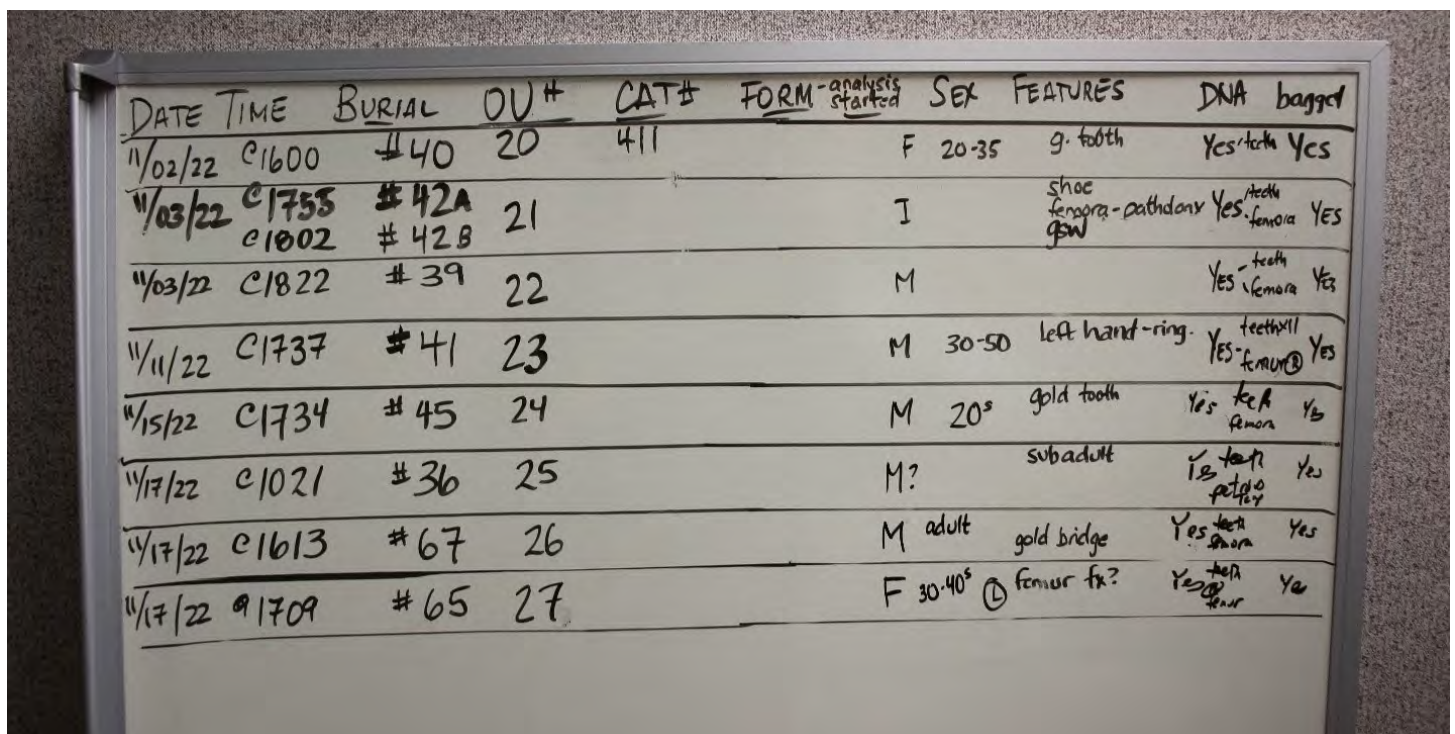 DATE TIME BURIAL OU# CAT# FORM - analysis started SEX FEATURES DNA bagged
11/02/22 @1600 #40 20 411 F 20-35 g. tooth Yes teeth Yes
11/03/22 @1755 #42A 21 I shoe femora - gsw Yes teeth femora YES
@1802 #42B
11/03/22 @1822 #39 22 M YES - teeth femora YES
11/11/22 @1737 #41 23 M 30-50 left hand - ring. YES - teethx11 femur R YES
11/15/22 @1734 #45 24 M 20s gold tooth Yes teeth femora
11/17/22 @1021 #36 25 M? subadult teeth Yes
11/17/22 @1613 #67 26 M adult gold bridge Yes teeth femora Yes
11/17/22 @1709 #65 27 F 30-40s L femur fx? Yes teeth femur